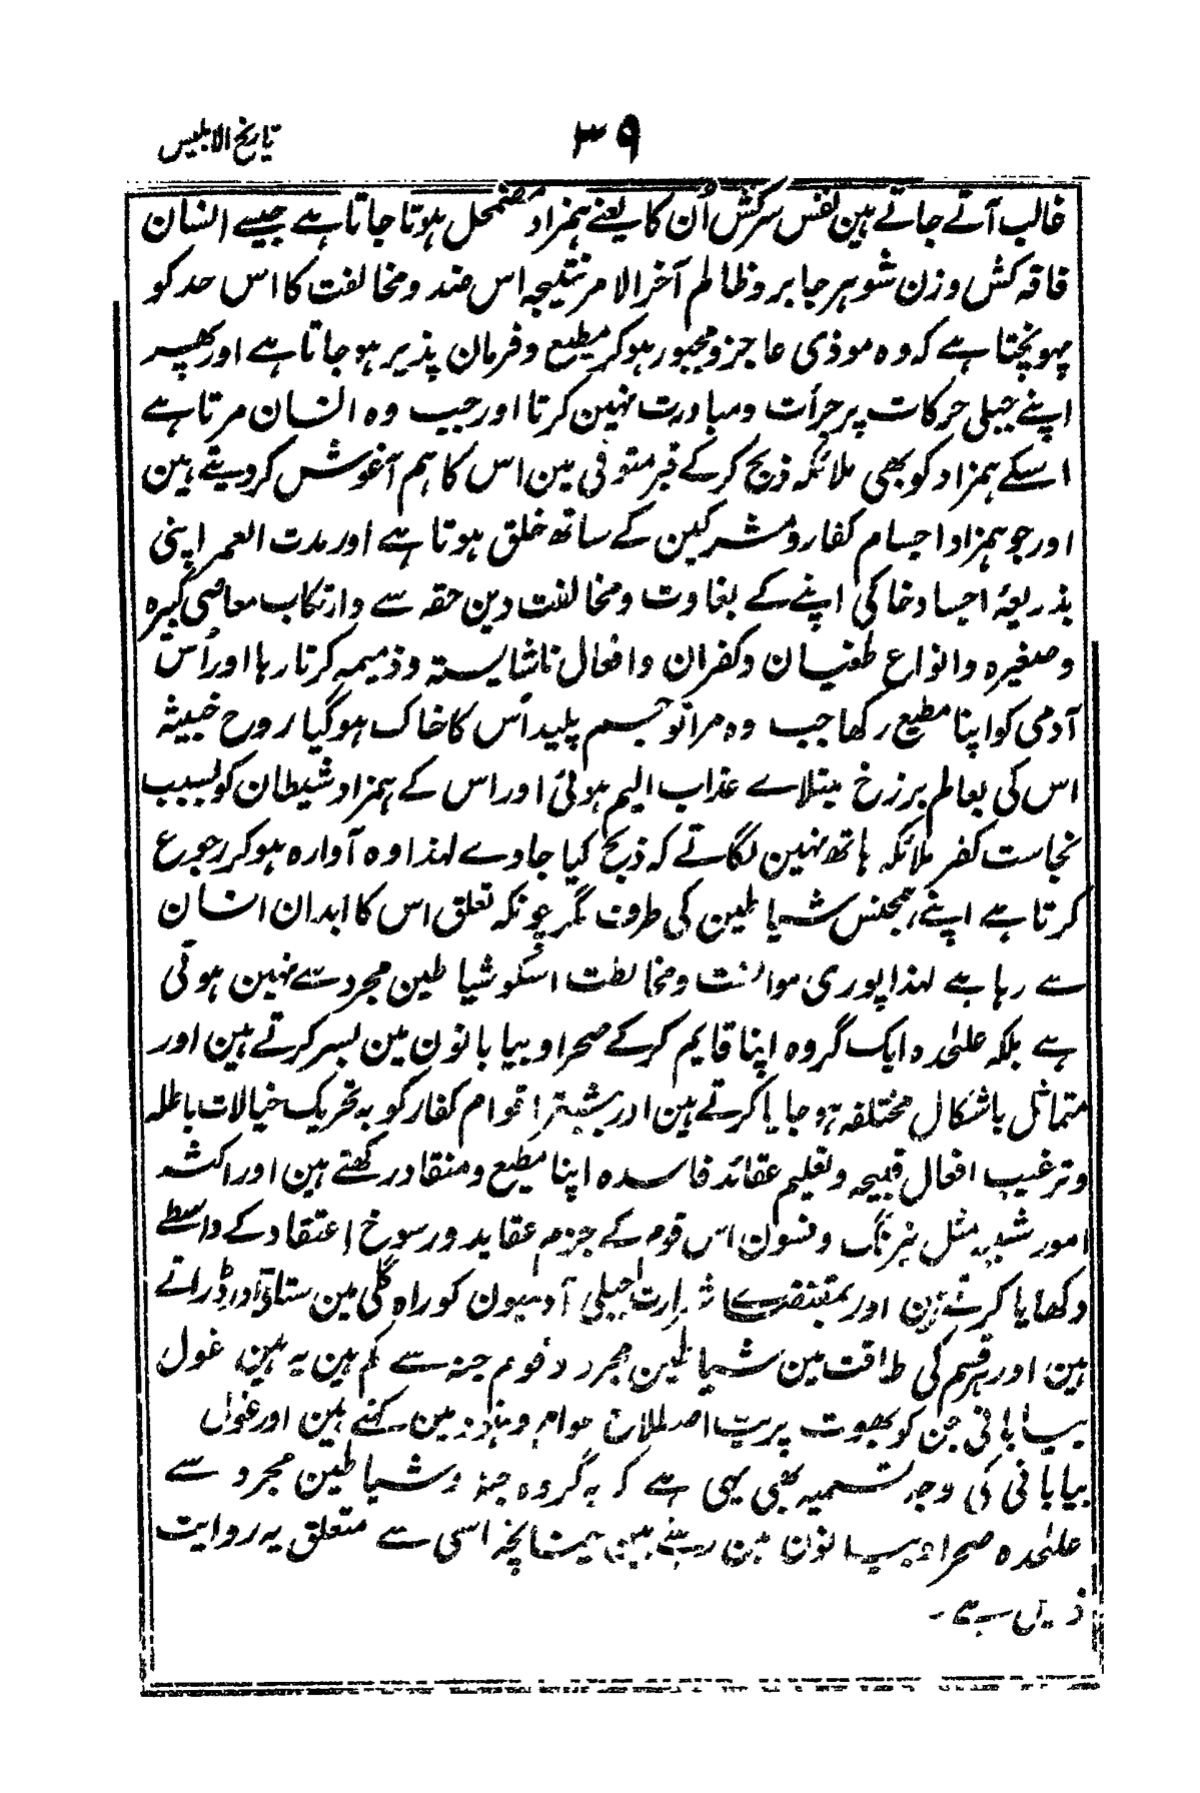 تاریخ الابلیس
۳۹
غالب آتے جاتے ہین نفس سرکش اُن کا یعنے ہمزاد مضمحل ہوتا جاتا ہے جیسے انسان
فاقہ کش و زن شوہر جابر و ظالم آخر الامر نتیجہ اس ضد و مخالفت کا اس حد کو
پہونچتا ہے کہ وہ موذی عاجز و مجبور ہوکر مطیع و فرمان پذیر ہو جاتا ہے اور پھر
اپنے جبلی حرکات پر جرأت و مبادرت نہین کرتا اور جب وہ انسان مرتا ہے
اسکے ہمزاد کو بھی ملائکہ ذبح کر کے قبر متوفی مین اس کا ہم آغوش کر دیتے ہین
اور جو ہمزاد اجسام کفار و مشرکین کے ساتھ خلق ہوتا ہے اور مدت العمر اپنی
بذریعۂ اجساد خاکی اپنے کے بغاوت و مخالفت دین حقہ سے و ارتکاب معاصی کبیرہ
و صغیرہ و انواع طغیان و کفران و افعال ناشایستہ و ذمیمہ کرتا رہا اور اُس
آدمی کو اپنا مطیع رکھا جب وہ مرا تو جسم پلید اُس کا خاک ہو گیا روح خبیثہ
اس کی بعالم برزخ مبتلاے عذاب الیم ہوئی اور اس کے ہمزاد شیطان کو بسبب
نجاست کفر ملائکہ ہاتھ نہین لگاتے کہ ذبح کیا جاوے لہذا وہ آوارہ ہو کر رجوع
کرتا ہے اپنے ہمجنس شیاطین کی طرف مگر چونکہ تعلق اس کا ابدان انسان
سے رہا ہے لہذا پوری موانست و مخالطت اسکو شیاطین مجرد سے نہین ہوتی
ہے بلکہ علٰحدہ ایک گروہ اپنا قایم کر کے صحرا و بیابانون مین بسر کرتے ہین اور
متماثل باشکال مختلفہ ہو جایا کرتے ہین اور بیشتر اقوام کفار کو بہ تحریک خیالات باطلہ
و ترغیب افعال قبیحہ و تعلیم عقائد فاسدہ اپنا مطیع و منقاد رکھتے ہین اور اکثر
امور مثل نیرنگ و فسون اس قوم کے جزم عقاید و رسوخ اعتقاد کے واسطے
دکھایا کرتے ہین اور بمقتضاے شرارت جبلی آدمیون کو راہ گلی مین ستاتے اور ڈراتے
ہین اور ہر قسم کی طاقت مین شیاطین مجرد و قوم جنہ سے کم ہین یہ ہین غول
بیابانی جن کو بھوت پریت اصطلاح عوام و ہنود مین کہتے ہین اور غول
بیابانی کی وجہ تسمیہ بھی یہی ہے کہ یہ گروہ جنہ و شیاطین مجرد سے
علٰحدہ صحرا و بیابانون مین رہتے ہین چنانچہ اسی سے متعلق یہ روایت
ذیل ہے ۔